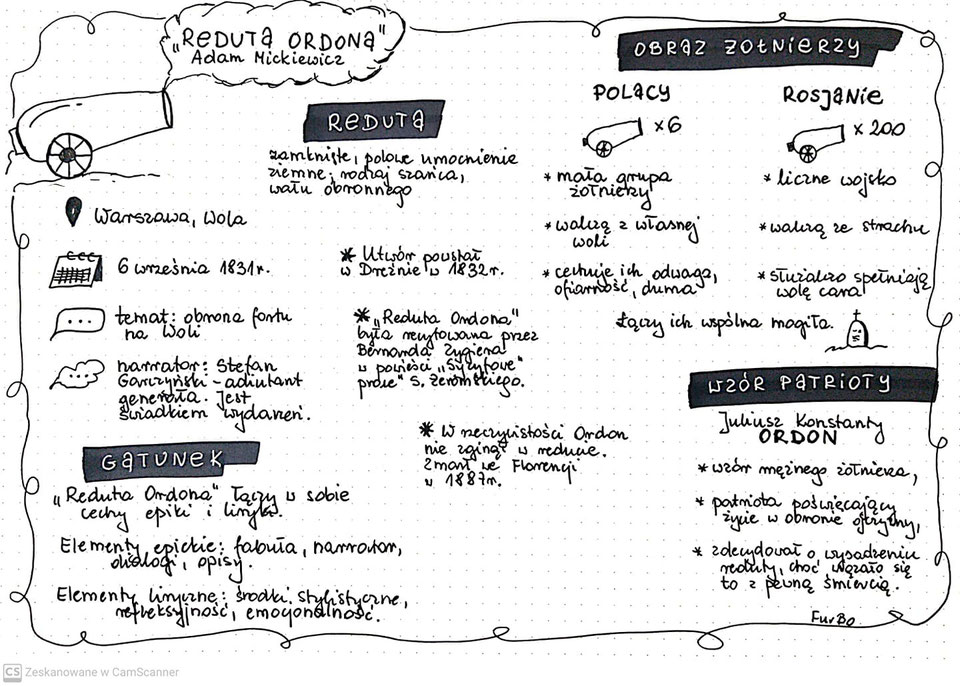 „REDUTA ORDONA"
Adam Mickiewicz
REDUTA
zamknięte, polowe umocnienie
ziemne; rodzaj szańca,
wału obronnego
Warszawa, Wola
6 września 1831r.
temat: obrona fortu
na Woli
narrator: Stefan
Garczyński - adiutant
generała. Jest
świadkiem wydarzeń.
* Utwór powstał
w Dreźnie w 1832r.
* „Reduta Ordona"
była recytowana przez
Bernarda Zygiera
w powieści „Syzyfowe
prace" S. Żeromskiego.
* W rzeczywistości Ordon
nie zginął w reducie.
Zmarł we Florencji
w 1887r.
GATUNEK
„Reduta Ordona" łączy w sobie
cechy epiki i liryki.
Elementy epickie: fabuła, narrator,
dialogi, opisy.
Elementy liryczne: środki stylistyczne,
refleksyjność, emocjonalność.
OBRAZ ŻOŁNIERZY
POLACY
x6
* mała grupa
żołnierzy
* walczą z własnej
woli
* cechuje ich odwaga,
ofiarność, duma
ROSJANIE
x 200
* liczne wojsko
* walczą ze strachu
* służalczo spełniają
wolę cara
Łączy ich wspólna mogiła.
WZÓR PATRIOTY
Juliusz Konstanty
ORDON
* wzór mężnego żołnierza,
* patriota poświęcający
życie w obronie ojczyzny,
* zdecydował o wysadzeniu
reduty, choć wiązało się
to z pewną śmiercią.
FurBo
CS Zeskanowane w CamScanner